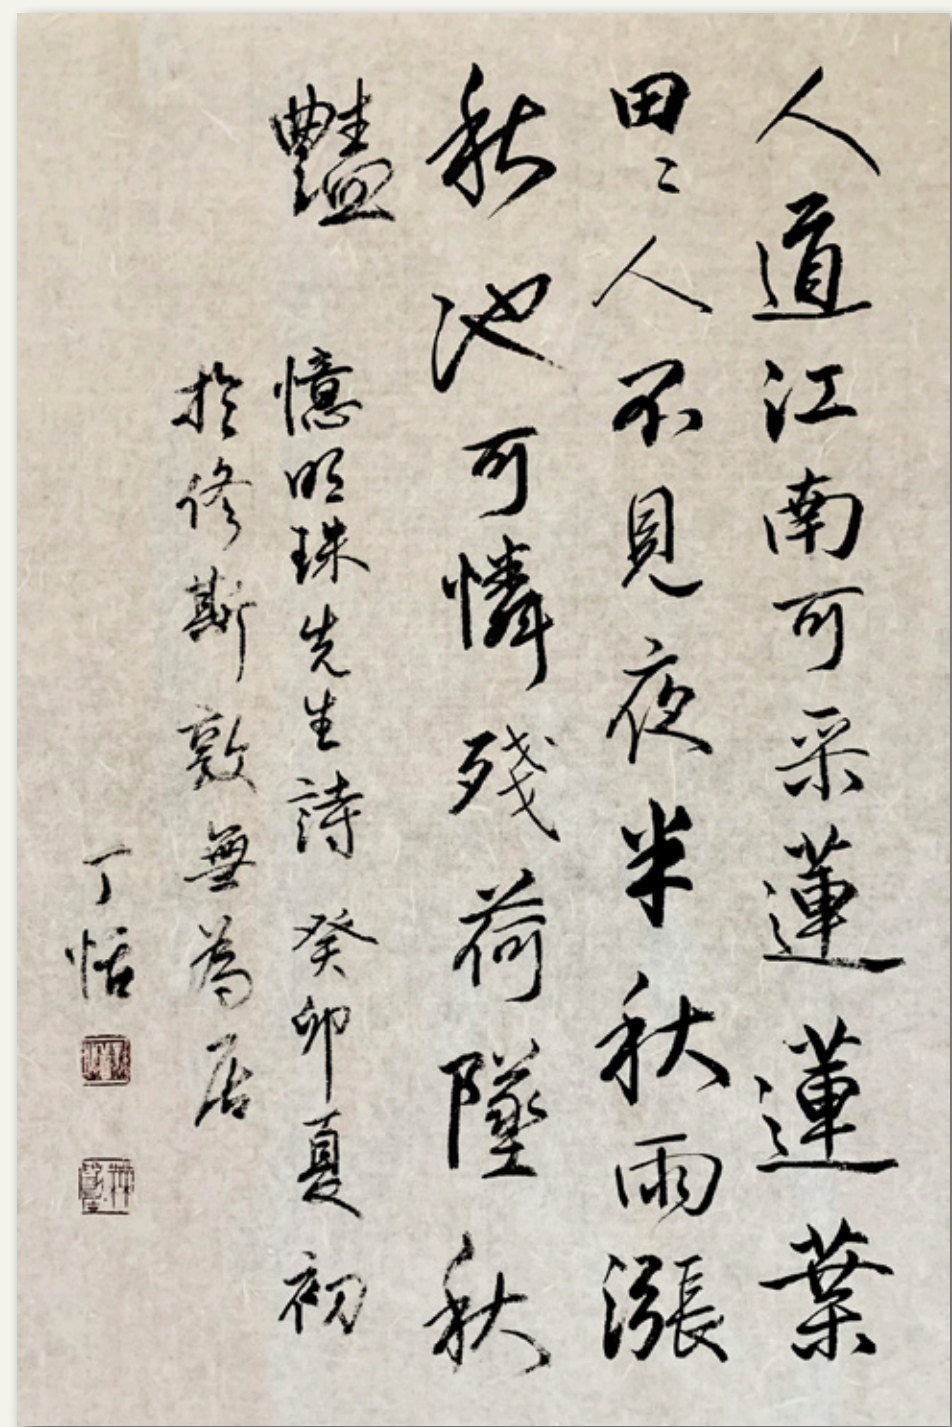 人道江南可采蓮蓮葉
田〻人不見夜来秋雨漲
秋池可憐残荷墜秋
豔 憶明珠先生詩 癸卯夏初
於修斯敦無為居
丁恬